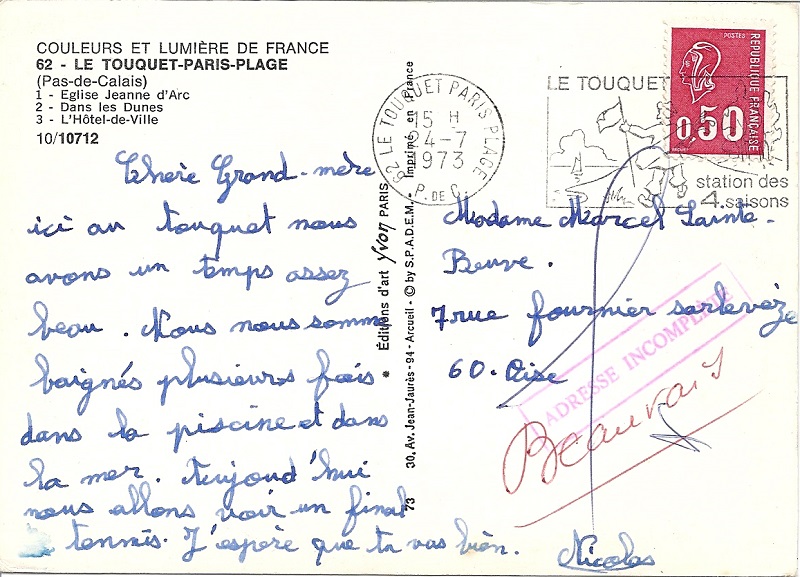 COULEURS ET LUMIÈRE DE FRANCE
62 - LE TOUQUET-PARIS-PLAGE
(Pas-de-Calais)
1 - Eglise Jeanne d'Arc
2 - Dans les Dunes
3 - L'Hôtel-de-Ville
10/10712
Chère Grand-mère
ici au touquet nous
avons un temps assez
beau. Nous nous somme
baignés plusieurs fois
dans la piscine et dans
la mer. Aujourd'hui
nous allons voir un final
tennis. J'espère que tu vas bien.
Nicolas
Editions d'art Yvon PARIS
30, Av. Jean-Jaurès - 94 - Arcueil - © by S.P.A.D.E.M. - Imprimé en France
73
62 LE TOUQUET PARIS PLAGE
15 H
24-7
1973
P. DE C.
LE TOUQUET
station des
4 saisons
POSTES
REPUBLIQUE FRANÇAISE
0,50
Madame Marcel Sainte-
Beuve.
7 rue fournier sarlovèze
60. Oise
ADRESSE INCOMPLÈTE
Beauvais